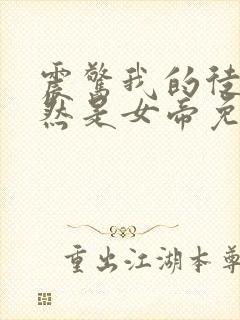 震驚我的徒
然是女帝免
重出江湖本尊